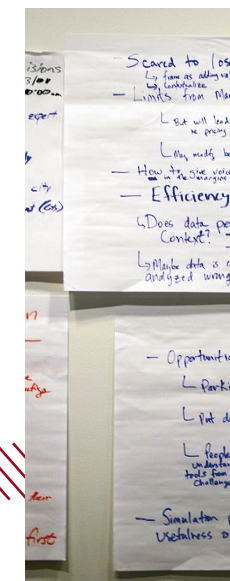 isions
3/01
0:00am
expert
city
- Scared to los
↳ frame as adding val
↳ Contextualize
- Limits from Mar
↳ But will lead
↳ May modify be
- How to give voice
in the margins
- Efficiency
↳ Does data pe
Context?
↳ Maybe data is c
analyzed wrong
n
first
- Opportuniti
↳ Parki
↳ Put d
↳ People
understan
tools from
Challeng
- Simulation p
Usefulness o